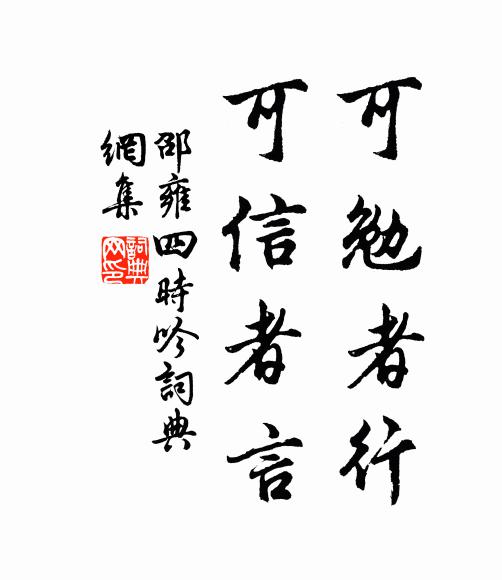 可勉者行
可信者言
邵雍四時吟詞典
網集
詞典
网印